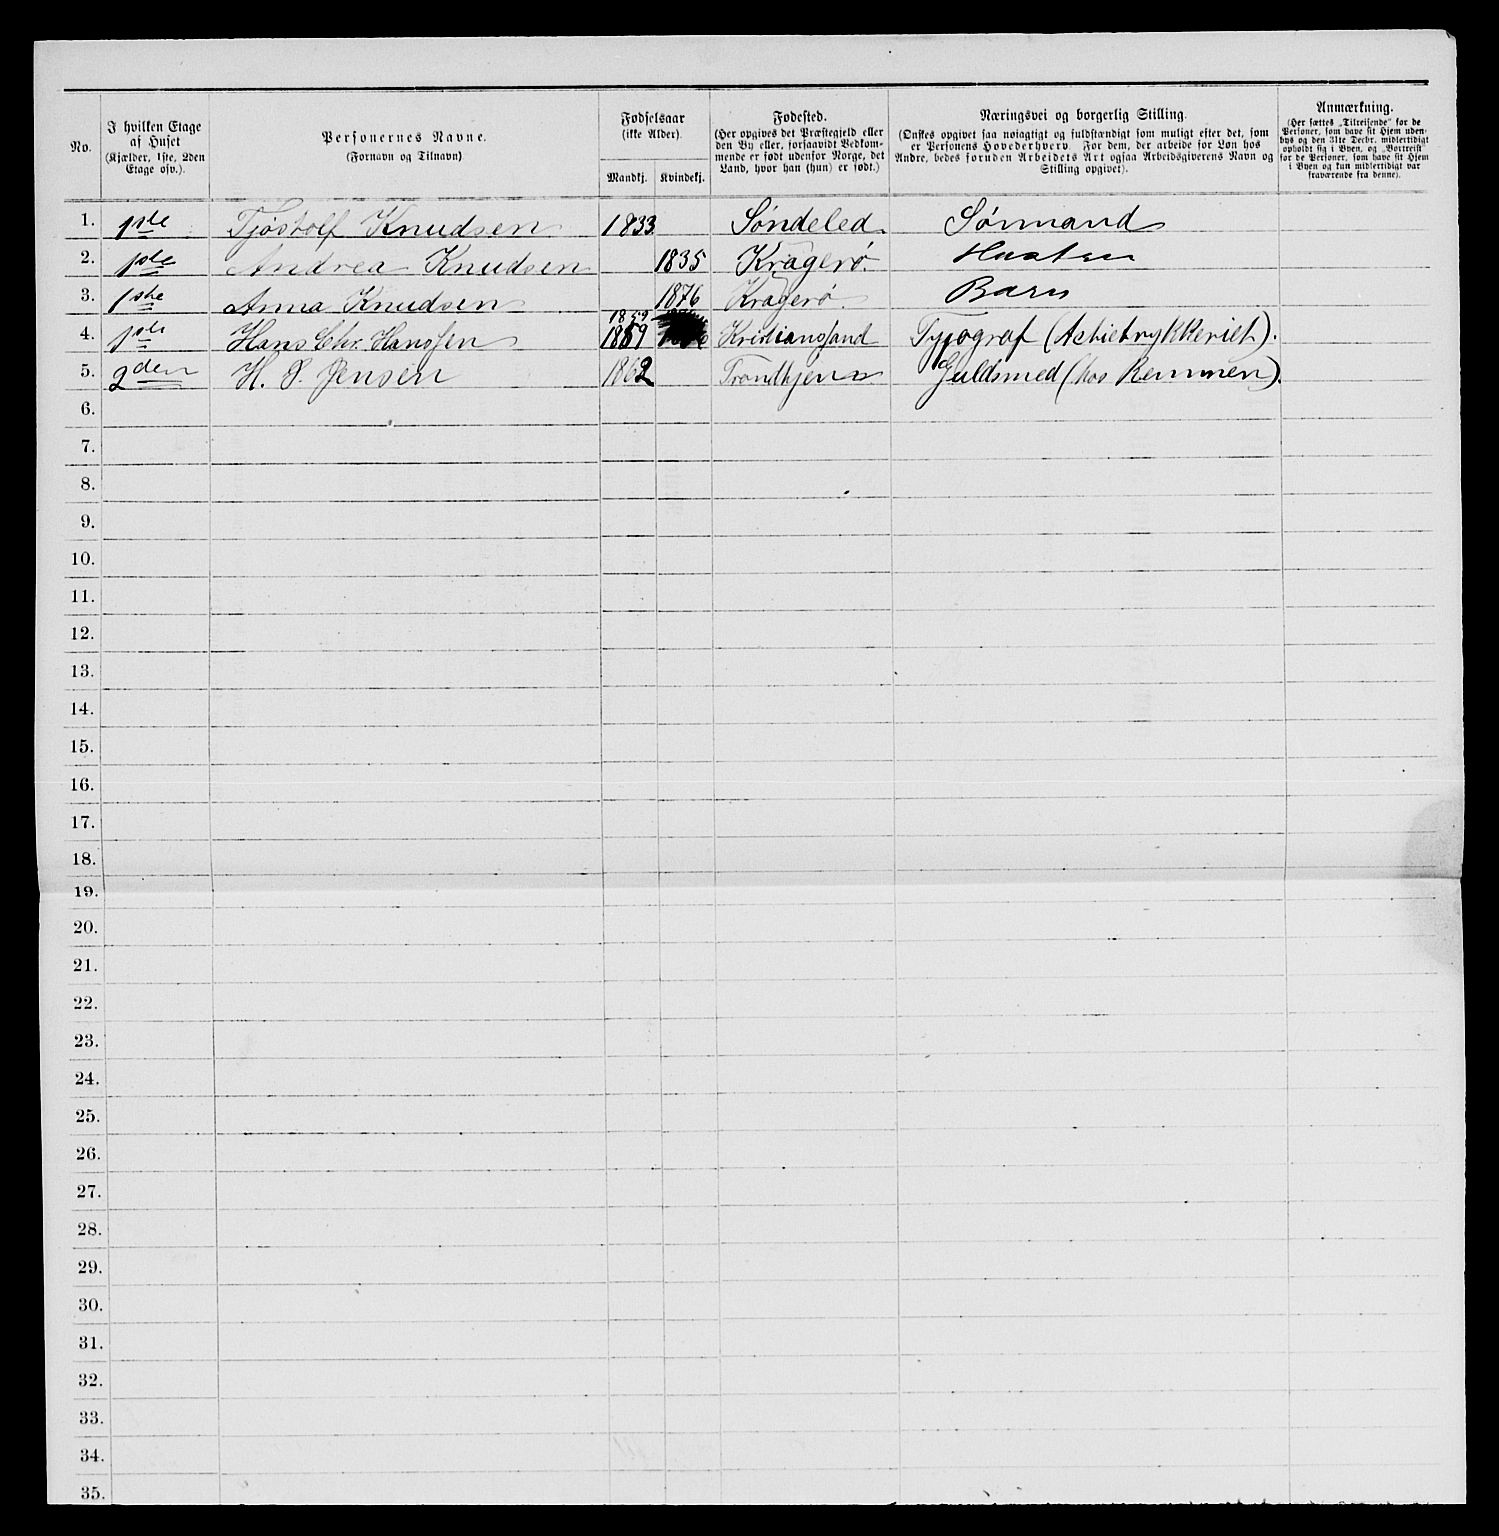 No.
I hvilken Etage af Huset (Kjælder, 1ste, 2den Etage osv.).
Personernes Navne. (Fornavn og Tilnavn)
Fødselsaar (ikke Alder).
Mandkj. Kvindekj.
Fødested. (Her opgives det Præstegjeld eller den By eller, forsaavidt Vedkommende er født udenfor Norge, det Land, hvor han (hun) er født.)
Næringsvei og borgerlig Stilling. (Ønskes opgivet saa nøiagtigt og fuldstændigt som muligt efter det, som er Personens Hovederhverv. For dem, der arbeide for Løn hos Andre, bedes foruden Arbeidets Art ogsaa Arbeidsgiverens Navn og Stilling opgivet).
Anmærkning. (Her sættes „Tilreisende" for de Personer, som have sit Hjem udenbys og den 31te Decbr. midlertidigt opholdt sig i Byen, og „Bortreist" for de Personer, som have sit Hjem i Byen og kun midlertidigt var fraværende fra denne).
1. 1ste Tjøstolf Knudsen 1833 Søndeled Sømand
2. 1ste Andrea Knudsen 1835 Kragerø.
3. 1ste Anna Knudsen 1876 Kragerø Barn
1859
4. 1ste Hans Chr. Hanssen 1859 Kristianssand Typograf (Actietrykkeriet).
5. 2den H. P. Jensen 1862 Trondhjem Guldsmed (hos Remmen).
6.
7.
8.
9.
10.
11.
12.
13.
14.
15.
16.
17.
18.
19.
20.
21.
22.
23.
24.
25.
26.
27.
28.
29.
30.
31.
32.
33.
34.
35.